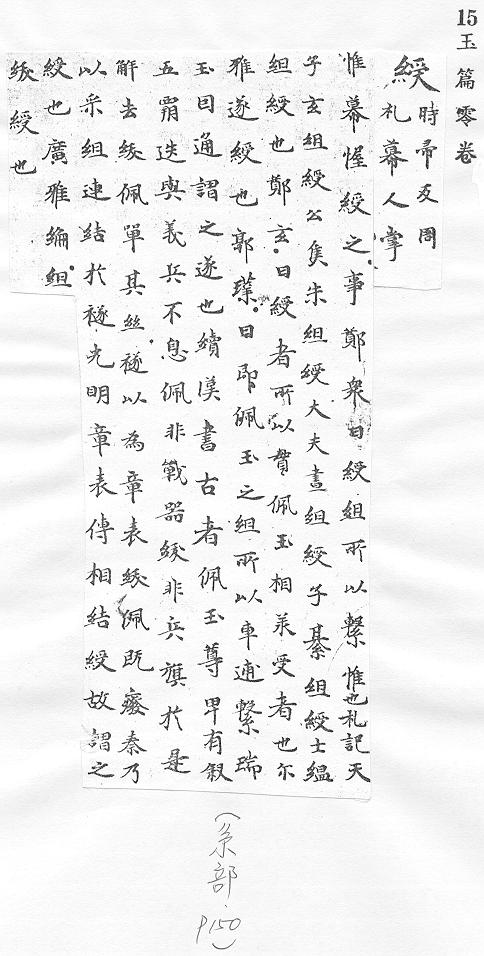 15
玉篇零卷
綬
時帚反周
礼幕人掌
惟幕幄綬之事鄭衆曰綬組所以繫惟也札記天
子玄組綬公侯朱組綬大夫畫組綬子綦組綬士縕
組綬也鄭玄曰綬者所以貫佩玉相承受者也尔
雅遂綬也郭璞曰即佩玉之組所以車連繫瑞
玉曰通謂之遂也續漢書古者佩玉尊卑有叙
五霸迭興義兵不息佩非戰器綬非兵旗於是
解去綬佩單其絲襚以為章表綬佩既癈秦乃
以采組連結於襚光明章表傳相結綬故謂之
綬也廣雅綸組
紱綬也
(糸部 P150)